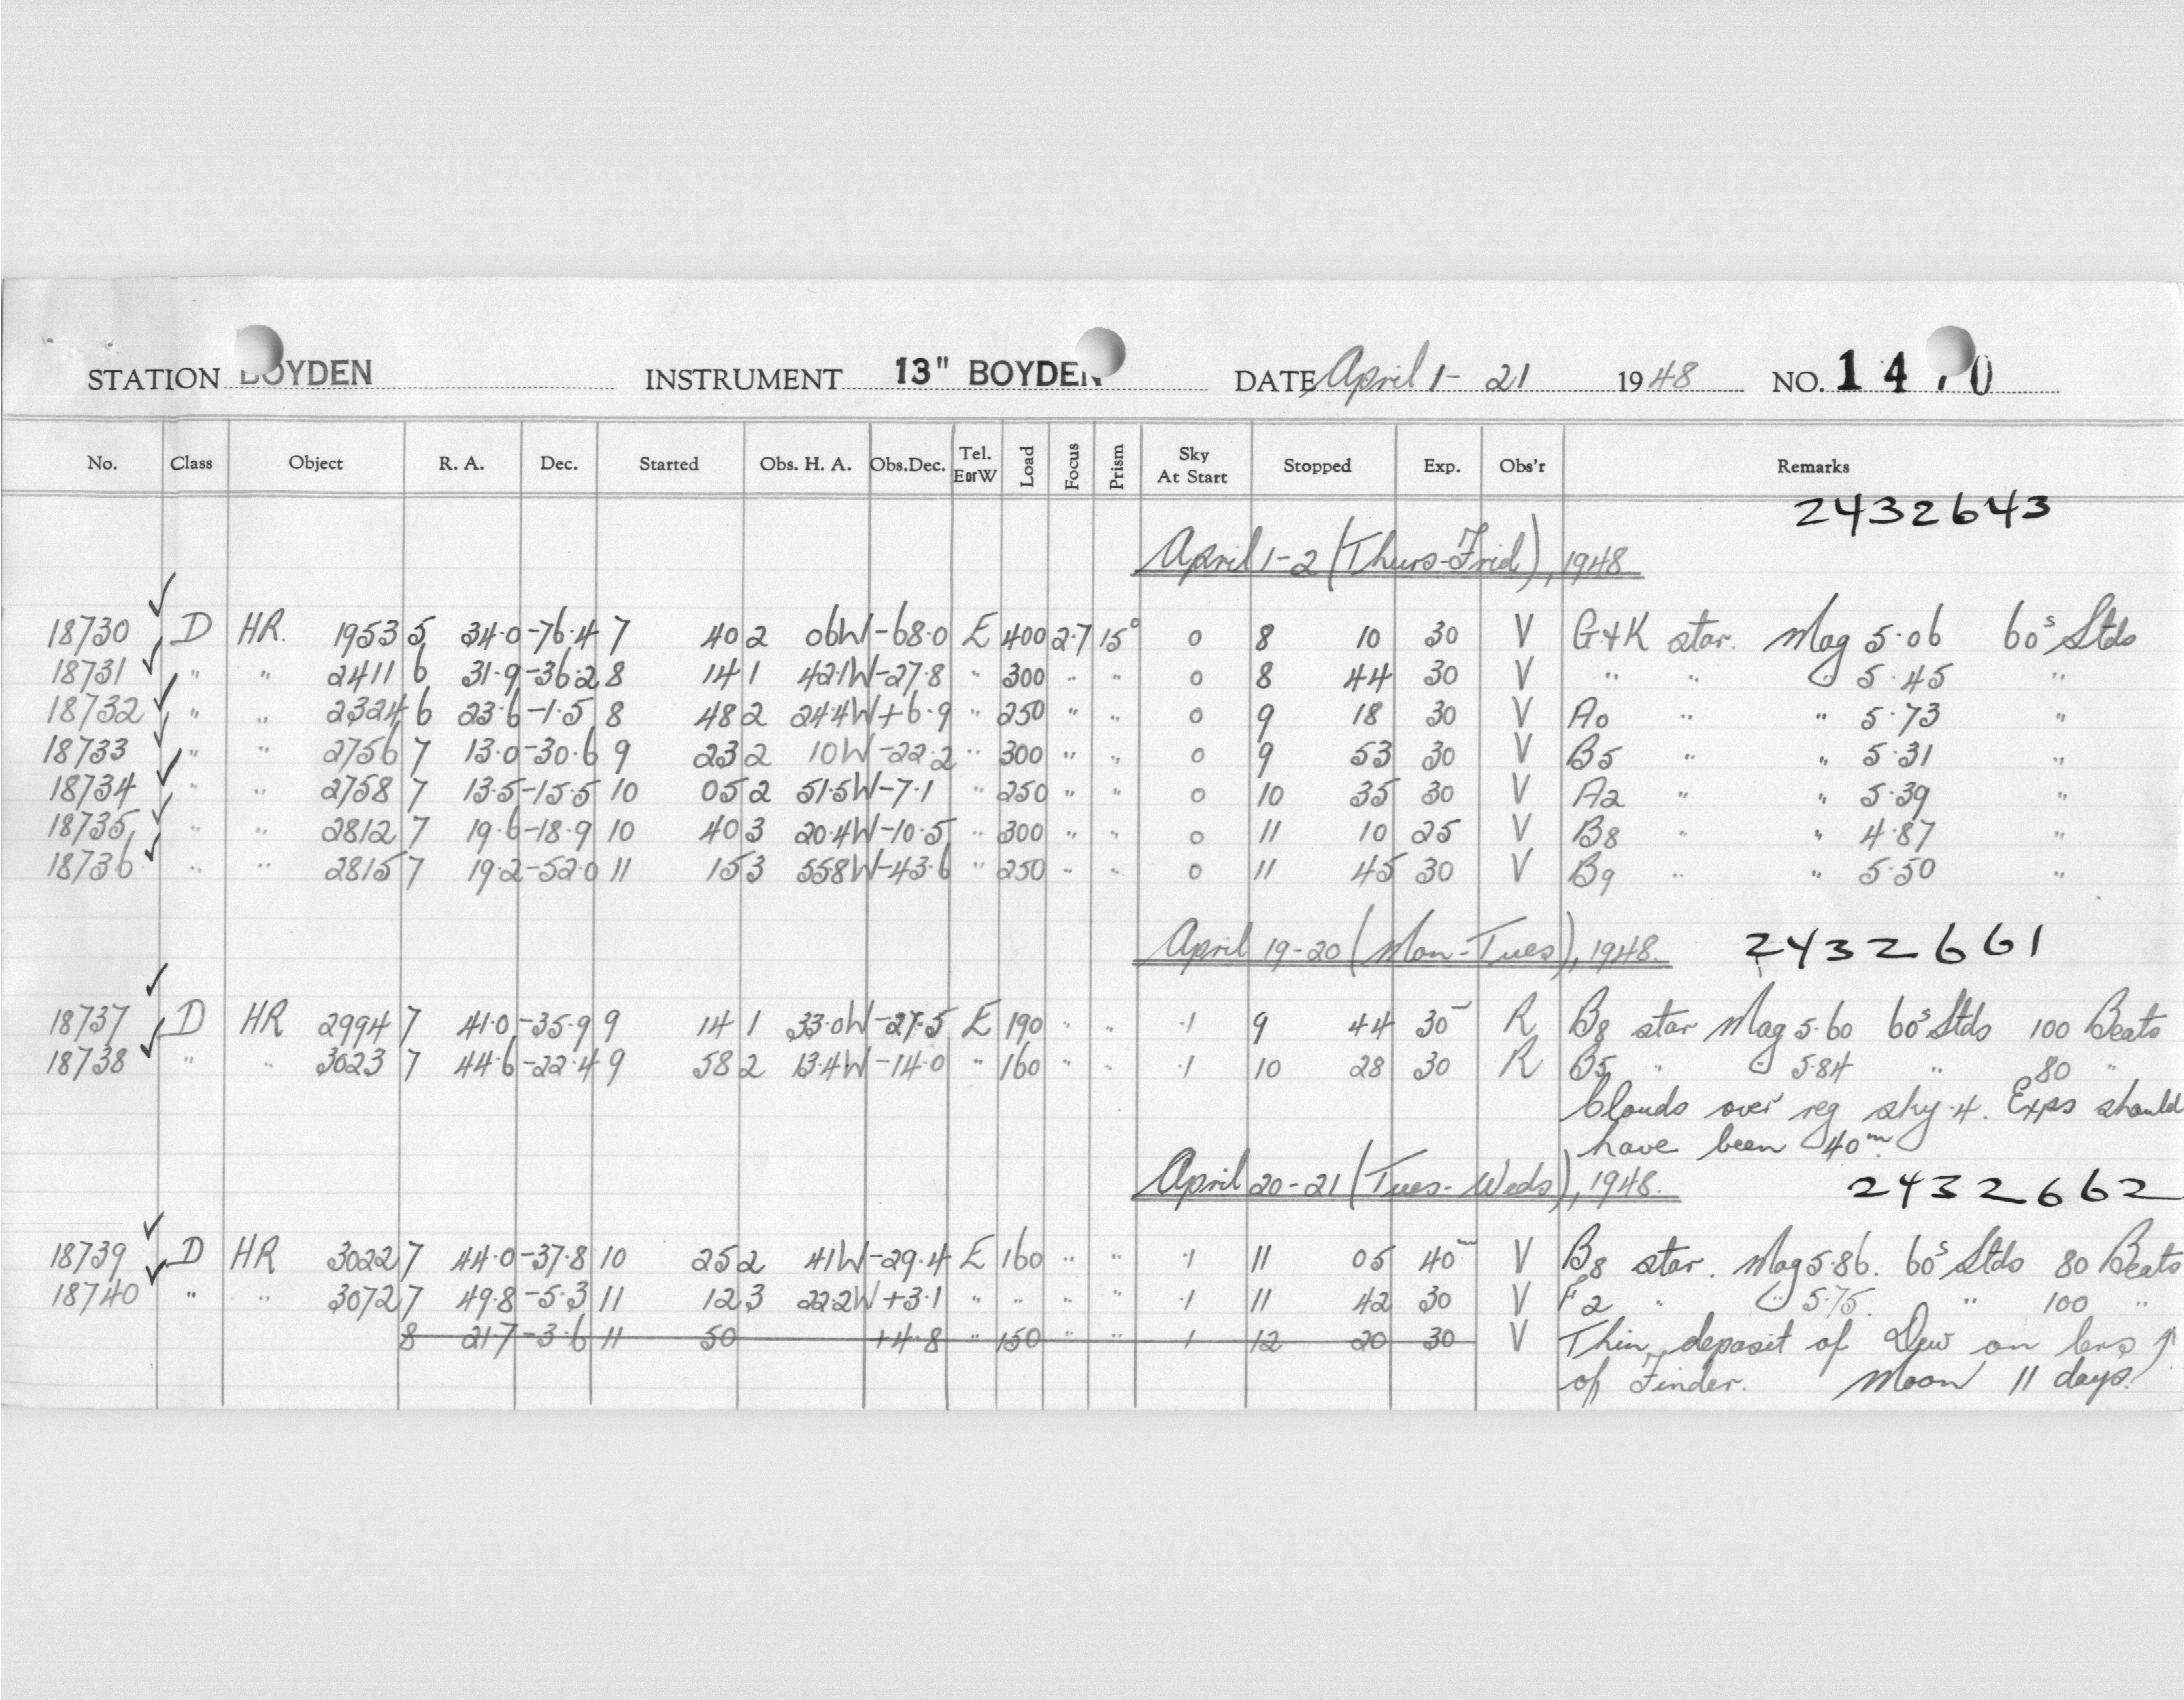 STATION BOYDEN INSTRUMENT 13" BOYDEN DATE April 1- 21 1948 NO. 14 0
No. Class Object R. A. Dec. Started Obs. H. A. Obs.Dec. Tel. EorW Load Focus Prism Sky At Start Stopped Exp. Obs'r Remarks
2432643
April 1-2 (Thurs-Frid), 1948
18730 ✓ D HR. 1953 5 34.0 -76.4 7 40 2 06W -68.0 E 400 2.7 15° 0 8 10 30 V G+K star. Mag 5.06 60s Stds
18731 ✓ " " 2411 6 31.9 -36.2 8 14 1 42.1W -27.8 " 300 " " 0 8 44 30 V " " " 5.45 "
18732 ✓ " " 2324 6 23.6 -1.5 8 48 2 24.4W +6.9 " 250 " " 0 9 18 30 V A0 " " 5.73 "
18733 ✓ " " 2756 7 13.0 -30.6 9 23 2 10W -22.2 " 300 " " 0 9 53 30 V B5 " " 5.31 "
18734 ✓ " " 2758 7 13.5 -15.5 10 05 2 51.5W -7.1 " 250 " " 0 10 35 30 V A2 " " 5.39 "
18735 ✓ " " 2812 7 19.6 -18.9 10 40 3 20.4W -10.5 " 300 " " 0 11 10 25 V B8 " " 4.87 "
18736 ✓ " " 2815 7 19.2 -52.0 11 15 3 55.8W -43.6 " 250 " " 0 11 45 30 V B9 " " 5.50 "
April 19-20 (Mon-Tues), 1948. 2432661
18737 ✓ D HR 2994 7 41.0 -35.9 9 14 1 33.0W -27.5 E 190 " " .1 9 44 30 R B8 star Mag 5.60 60s Stds 100 Beats
18738 ✓ " " 3023 7 44.6 -22.4 9 58 2 13.4W -14.0 " 160 " " .1 10 28 30 R B5 " " 5.84 " 80 "
Clouds over reg sky .4. Exps should
have been 40m.
April 20-21 (Tues- Weds), 1948. 2432662
18739 ✓ D HR 3022 7 44.0 -37.8 10 25 2 41W -29.4 E 160 " " .1 11 05 40 V B8 star. Mag 5.86. 60s Stds 80 Beats
18740 ✓ " " 3072 7 49.8 -5.3 11 12 3 22.2W +3.1 " " " " .1 11 42 30 V F2 " " 5.75. " 100 "
8 21.7 -3.6 11 50 +4.8 " 150 " " 1 12 20 30 V Thin deposit of Dew on lens
of Finder. Moon 11 days.